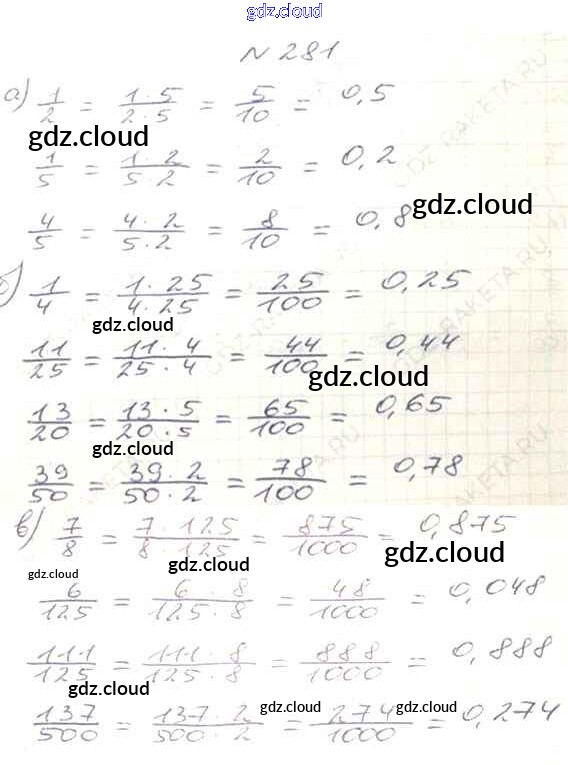 gdz.cloud
N 281
а) 1/2 = 1·5/2·5 = 5/10 = 0,5
gdz.cloud
1/5 = 1·2/5·2 = 2/10 = 0,2
4/5 = 4·2/5·2 = 8/10 = 0,8 gdz.cloud
б) 1/4 = 1·25/4·25 = 25/100 = 0,25
gdz.cloud
11/25 = 11·4/25·4 = 44/100 = 0,44
gdz.cloud
13/20 = 13·5/20·5 = 65/100 = 0,65
gdz.cloud
39/50 = 39·2/50·2 = 78/100 = 0,78
в) 7/8 = 7·125/8·125 = 875/1000 = 0,875
gdz.cloud
gdz.cloud
6/125 = 6·8/125·8 = 48/1000 = 0,048
111/125 = 111·8/125·8 = 888/1000 = 0,888
gdz.cloud
gdz.cloud gdz.cloud
137/500 = 137·2/500·2 = 274/1000 = 0,274